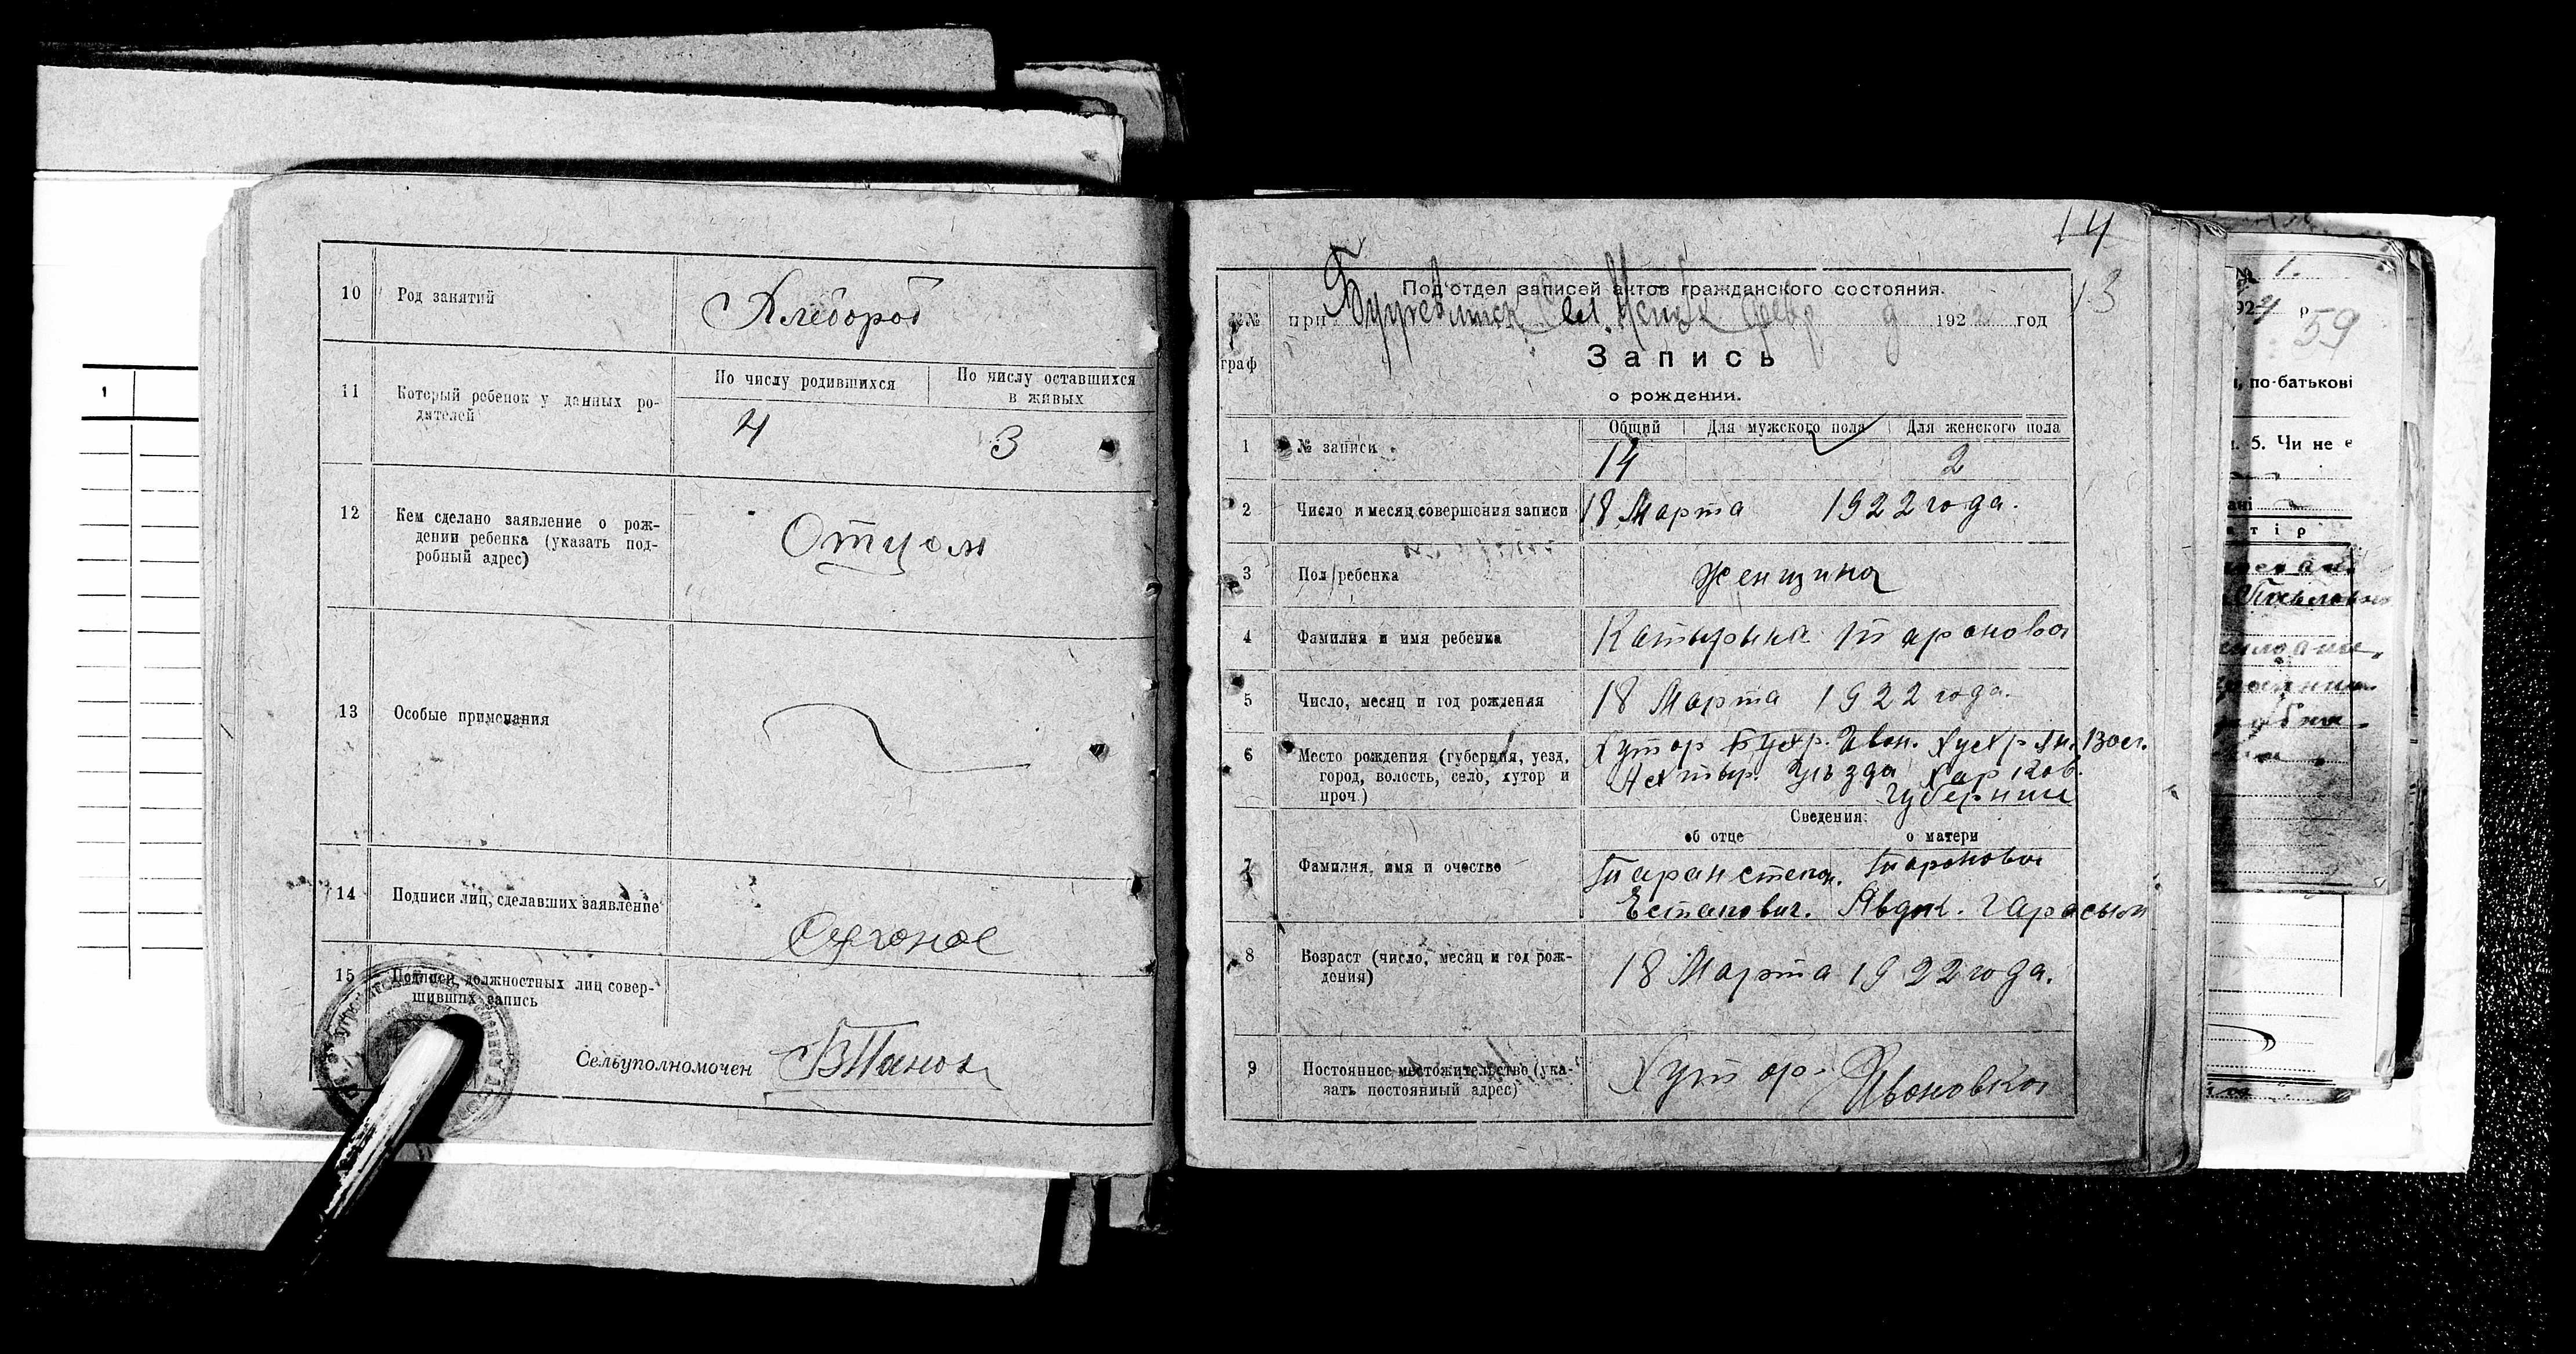 10 Род занятий Хлебороб
11 Который ребенок у данных ро-
дителей
По числу родившихся
По числу оставшихся
в живых
4 3
12 Кем сделано заявление о рож-
дении ребенка (указать под-
робный адрес)
Отцом
13 Особые примечания
14 Подписи лиц, сделавших заявление
15 Подписи должностных лиц совер-
шивших запись
Сельуполномочен
14
13
Под'отдел записей актов гражданского состояния.
№№
граф
при 1922 год
Запись
о рождении.
Общий Для мужского пола Для женского пола
1 № записи 14 2
2 Число и месяц совершения записи 18 Марта 1922 года.
3 Пол ребенка Женщина
4 Фамилия и имя ребенка Катырына Таранова
5 Число, месяц и год рождения 18 Марта 1922 года.
6 Место рождения (губерния, уезд,
город, волость, село, хутор и
проч)
Хутор
Ахтыр. Уезда Харков.
Губернии
Сведения:
об отце о матери
7 Фамилия, имя и очество
Таран степан. Таранова
Естапович. Явдок. Гарасым
8 Возраст (число, месяц и год рож-
дения)
18 Марта 1922 года.
9 Постоянное местожительство (ука-
зать постоянный адрес)
Хутор Ивановка
№ 1.
1924 р
59
по-батькові
5. Чи не є